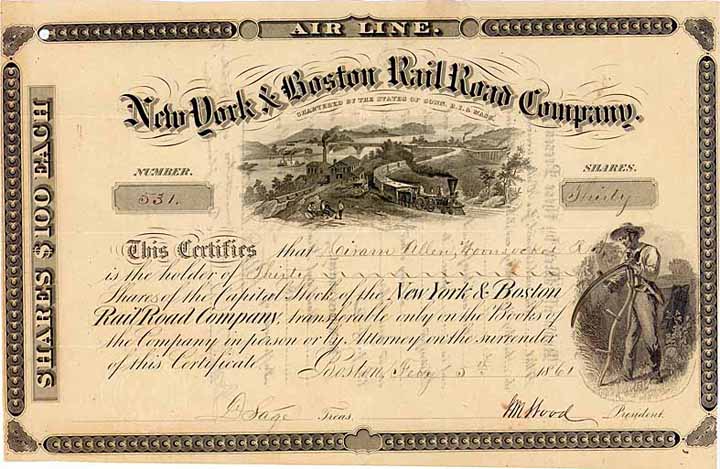 AIR LINE.
New York & Boston Rail Road Company.
CHARTERED BY THE STATES OF CONN. R.I. & MASS.
SHARES $100 EACH
NUMBER.
531.
SHARES.
Thirty
This Certifies that Hiram Allen, Woonsocket R.I.
is the holder of Thirty
Shares of the Capital Stock of the New York & Boston
Rail Road Company, transferable only on the Books of
the Company in person or by Attorney on the surrender
of this Certificate.
Boston, Feby 5th 1861
D Sage Treas.
JM Wood President